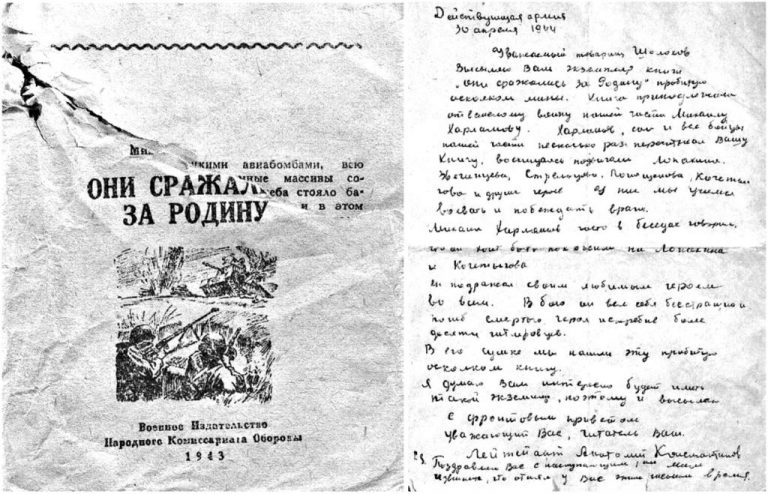 Ми
кими авиабомбами, всю
ные массивы со-
ОНИ СРАЖАЛ
еба стояло ба-
ЗА РОДИНУ
и в этом
Военное Издательство
Народного Комиссариата Обороны
1943
Действующая армия
30 апреля 1944
Уважаемый товарищ Шолохов
Высылаю Вам экземпляр книги
„Они сражались за Родину" пробитую
осколком мины. Книга принадлежала
отважному воину нашей части Михаилу
Харламову. Харламов, сам и все бойцы
нашей части несколько раз перечитали Вашу
Книгу, восхищаясь подвигами Лопахина.
Звягинцева, Стрельцова, Поприщенко, Кочеты
гова и других герое Из нее мы учимся
воевать и побеждать врага.
Михаил Харламов часто в беседах говорил,
что он хочет быть похожим на Лопахина
и Кочетыгова
Он подражал своим любимым героям
во всем. В бою он вел себя бесстрашно и
погиб смертью героя истребив более
десяти гитлеровцев.
В его сумке мы нашли эту пробитую
осколком книгу.
Я думаю Вам интересно будет иметь
такой экземпляр, поэтому и высылаю
С фронтовым приветом
уважающий Вас, читатель Ваш.
Лейтенант Анатолий Константинов
Поздравляю Вас с наступающим, 1м Мая
Извините, что отнял у Вас этим письмом время.